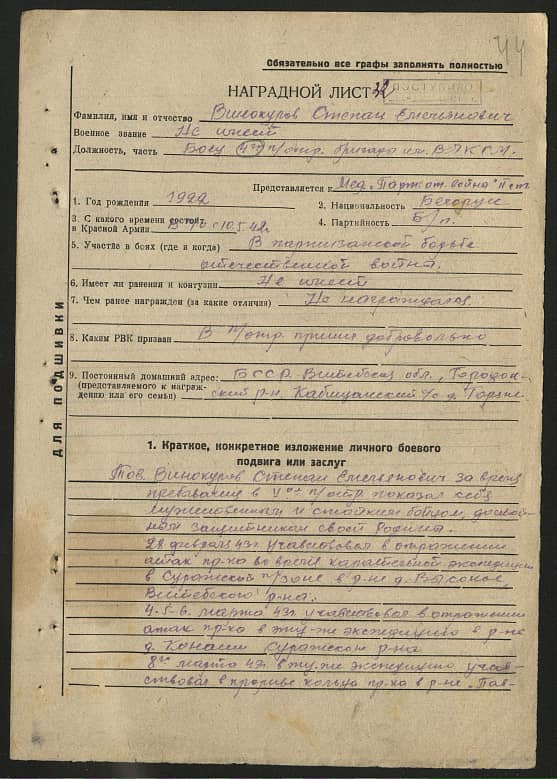 44
Обязательно все графы заполнять полностью
НАГРАДНОЙ ЛИСТ
ПОСТУПИЛО
Фамилия, имя и отчество Винокуров Степан Емельянович
Военное звание Не имеет
Должность, часть Боец п/отр. бригада им. ВЛКСМ.
Представляется к Мед. "Парт. от. война"
1. Год рождения 1922
2. Национальность Белорус
3. С какого времени состоит в Красной Армии В п/о с 10.5.42г.
4. Партийность Б/п.
5. Участие в боях (где и когда) В партизанской борьбе
отечественной война.
6. Имеет ли ранения и контузии Не имеет
7. Чем ранее награжден (за какие отличия) Не награждался
8. Каким РВК призван В п/отр. пришел добровольно
9. Постоянный домашний адрес: БССР. Витебская обл., Городок-
(представляемого к награждению или его семьи) ский р-н. Кабищанский с/с д.
ДЛЯ ПОДШИВКИ
1. Краткое, конкретное изложение личного боевого
подвига или заслуг
Тов. Винокуров Степан Емельянович за время
пребывания в п/отр. показал себя
мужественным и стойким бойцом, достой-
ным защитником своей Родины.
28 февраля 43г. участвовал в отражении
атак пр-ка во время карательной экспедиции
в Суражской п/зоне в р-не д. Высокое,
Витебского р-на.
4-5-6. марта 43г. участвовал в отражении
атак пр-ка в эту-же экспедицию в р-не
д. Суражского р-на
8го марта 43г. в ту-же экспедицию участ-
ствовал в прорыве кольца пр-ка в р-не "Пав-